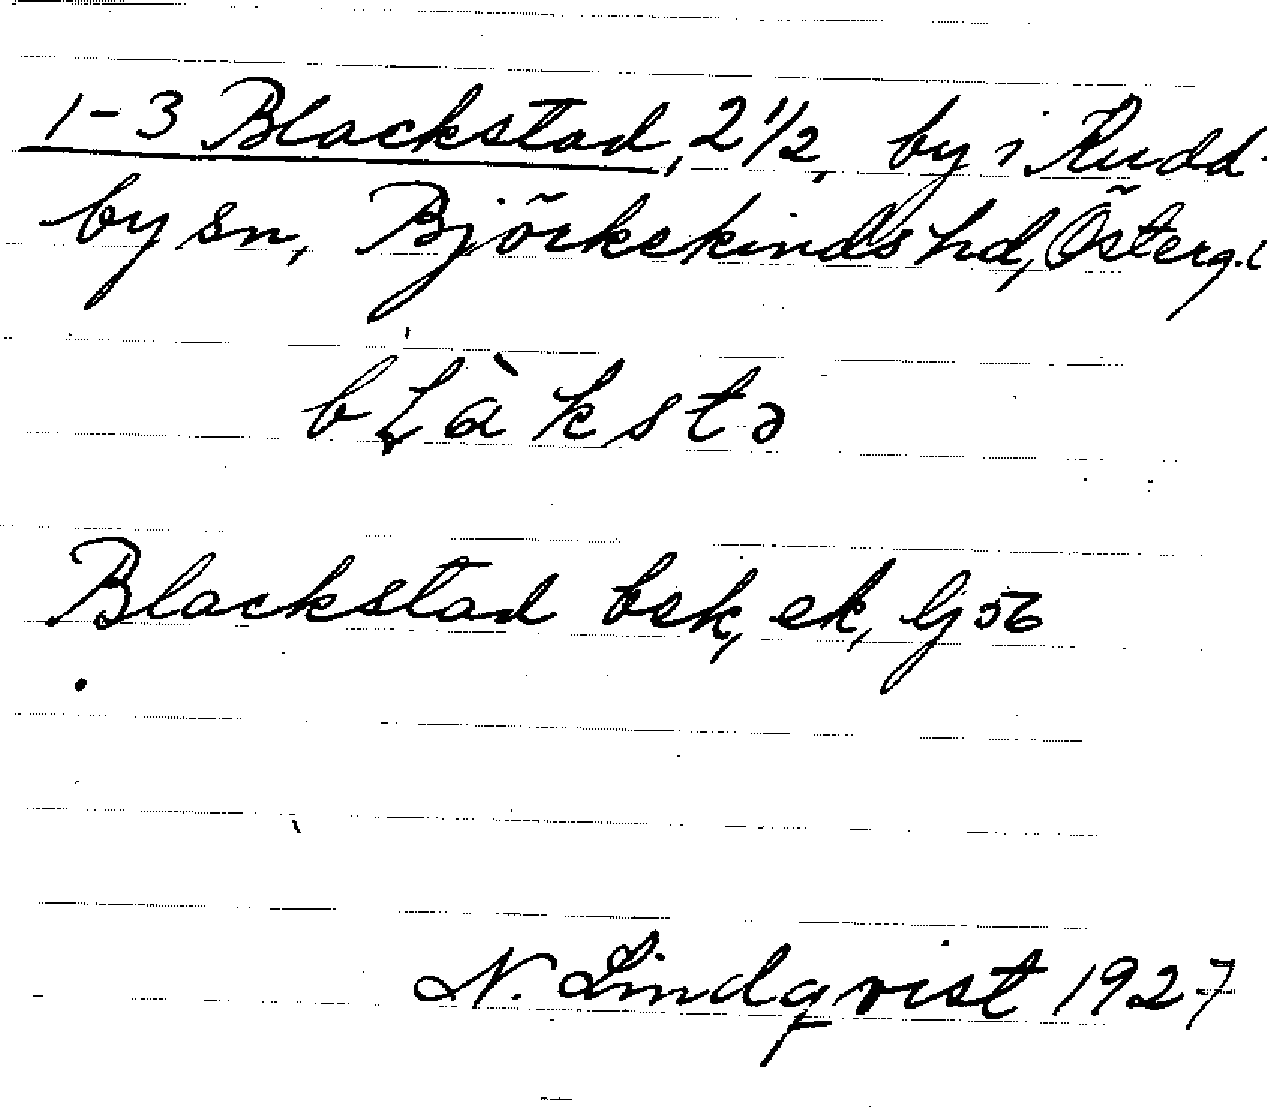 1-3 Blackstad, 2 1/2, by i Rudd-
by sn, Björkekinds hd, Österg.l
bḷàkstə
Blackstad bek, ek, Gj 56
N. Lindqvist 1927